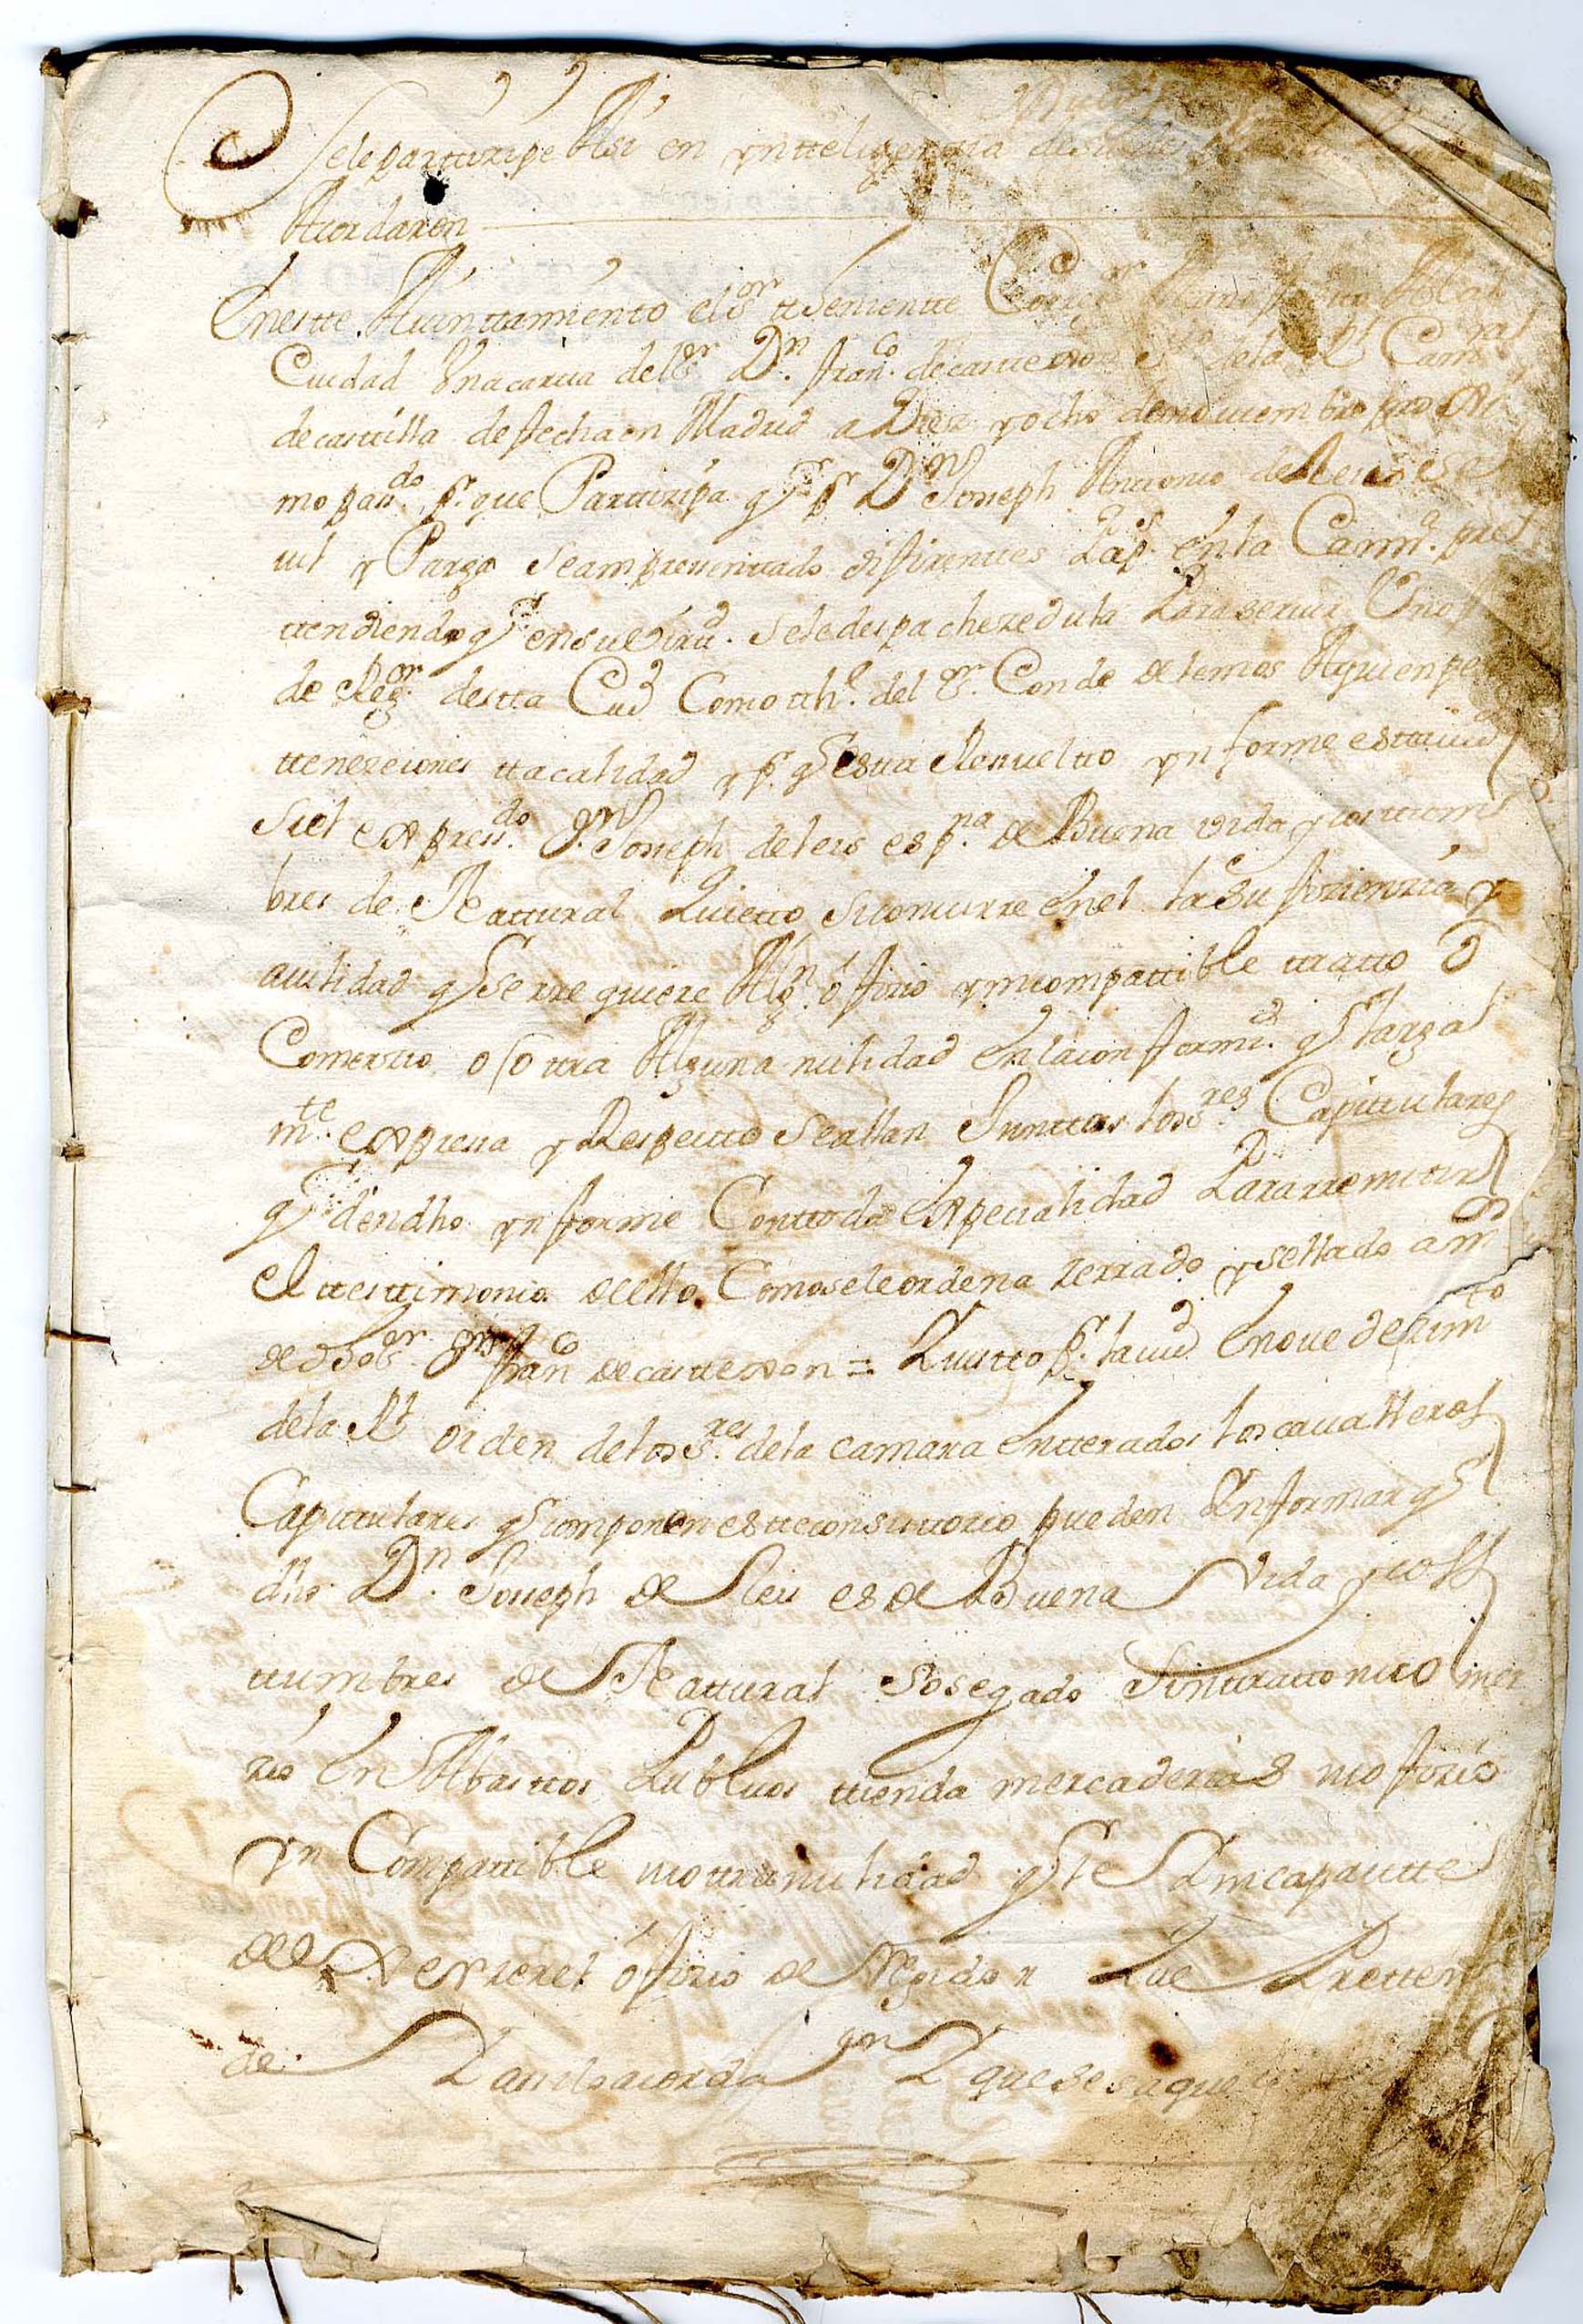 Separtizipe Assi en ynttelixenzia
Acordaron
En estte Aiunttamiento el Sor tteniente
Ciudad Una cartta del Sor Dn. franco. de casttexon de la Rl Camra
de casttilla de fecha en Madrid a Diez y ocho de nouiembre proxi
mo pasdo. pr. que Partizipa qe pr Dn Joseph Antonio de Leis
y Parga se an presenttado difirenttes Paps. en la Camra. prett
ttendiendo qe en su virttd. se le despache zedula Para seruir Uno
de Regor destta Ciud Como tthe. del Sor. Conde de lemos A quien per
tteneze con estta calidad y pr. qe estta Resueltto ynforme estta ciud
si el expresdo. Dn Joseph de leis es pna de Buena vida y costtum
bres de Nattural Quietto si concurre en el la sufizienzia y
auilidad qe se rrequiere Algn. ofizio yncompattible ttratto O
Comerzio o ottra Alguna nulidad en la conformd. qe larga
mte. expresa y Respectto se allan Junttos los Sres Capittulares
qe den dho ynforme Con ttoda Expezialidad Para rremitir
el ttesttimonio de ello Como se le ordena zerrado y sellado a mos
de dho Sor. Dn franco de casttexon = Uistto pr. la ciud En ouedezimto
de la Rl orden de los Sres. de la camara Entterados los caualleros
Capittulares qe componen estte consisttorio pueden Informar qe
dho Dn. Joseph de Leis es de Buena Vida y cos
ttumbres de Nattural Sosegado Sin ttratto ni comer
zio En Abasttos Publicos ttienda mercaderias ni ofizio
yn Compattible ni ottra nulidad qe le Yncapazitte
de exerzer el ofizio de Regidor Que Pretten
de Y assi lo acordaron Y que se saque